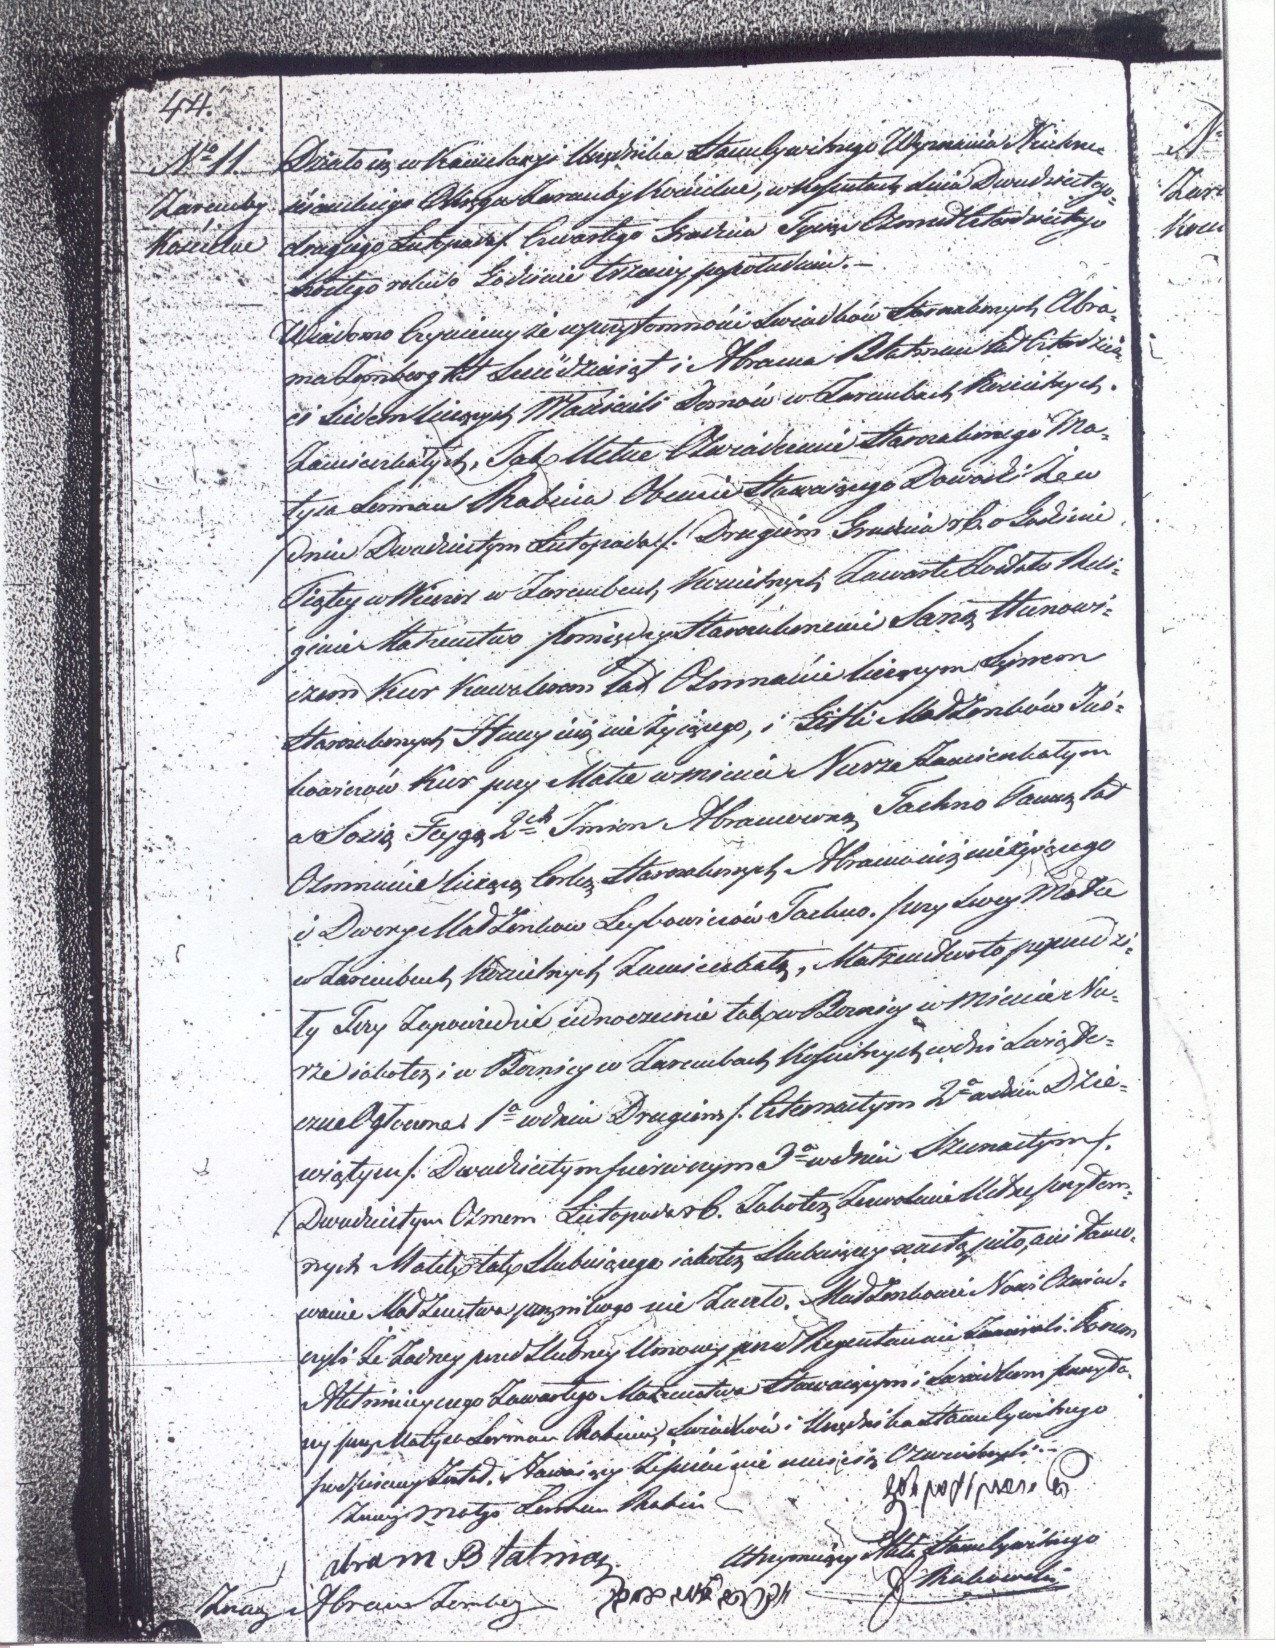 44.
No 11.
Zaremby
Kościelne
Działo się w Kancelaryi Urzędnika Stanu Cywilnego Wyznania Niechrze-
ściańskiego Okręgu Zaremby Kościelne, w dniu Dwudziestego
drugiego Listopada /. Czwartego Grudnia Tysiąc Ośmset
roku o Godzinie trzeciej popołudniu. —
Wiadomo Czyniemy że w przytomności Świadków Starozakonnych Abra-
ma Zember lat Sześćdziesiąt i Abrama Btatman lat Czterdzie-
ści Siedem liczących Właścicieli Domów w Zarembach Kościelnych
Zamieszkałych, Tak Ustne Oświadczenie Starozakonnego Ma-
tysa Lerman Rabina Obecnie Stawaiącego Dowodzi Że w
dniu Dwudziestym Listopada /. Drugim Grudnia r.b. o Godzinie
Piątey w Wieczór w Zarembach Kościelnych Zawarte Zostało Reli-
gijne Małżeństwo pomiędzy Starozakonnemi
czem Kur Kawalerem lat Ośmnaście liczącym Synem
Starozakonnych iuż nie żyiącego, i Gitli Małżonków
Kur przy Matce w mieście Nurze Zamieszkałym
a Sozią Feygą 2ch Imion Abramowną Tachno Panną lat
Ośmnaście liczącą Córką Starozakonnych Abrama iuż nie żyiącego
i Dwory Małżonków Leybowiczów Tachno. przy Swey Matce
w Zarembach Kościelnych Zamieszkałą, Małżeństwo to poprzedzi-
ły Trzy Zapowiedzie iednocześnie tak w Boznicy w Mieście Nu-
rze iakoteż i w Boznicy w Zarembach Kościelnych w dni Świąte-
czne Ogłoszone 1o w dniu Drugim /. Czternastym 2o w dniu Dzie-
wiątym /. Dwudziestym pierwszym 3o w dniu Szesnastym /.
Dwudziestym Ośmem Listopada r.b. Jakoteż Zezwolenie Ustne przytom-
nych Matek tak Slubuiącego iakoteż Slubuiącey nastąpiło, ani Tamo-
wanie Małżeństwa przeciwnego nie Zaszło. Małżonkowie Nowi Oświad-
czyli że Żadney przed Slubney Umowy przed Regentem nie Zawierali. Poczem
Akt niniejszego Zawartego Małżeństwa Stawaiącym i Świadkom przeczyta-
ny przez Matysa Lerman Rabina, Świadków i Urzędnika Stanu Cywilnego
podpisany Został. Stawaiący pisać nie umieią Oświadczyli. —
Znaczy Matys Lerman Rabin
abram Btatman
Utrzymuiący Akta Stanu Cywilnego
Znaczy Abram Zember